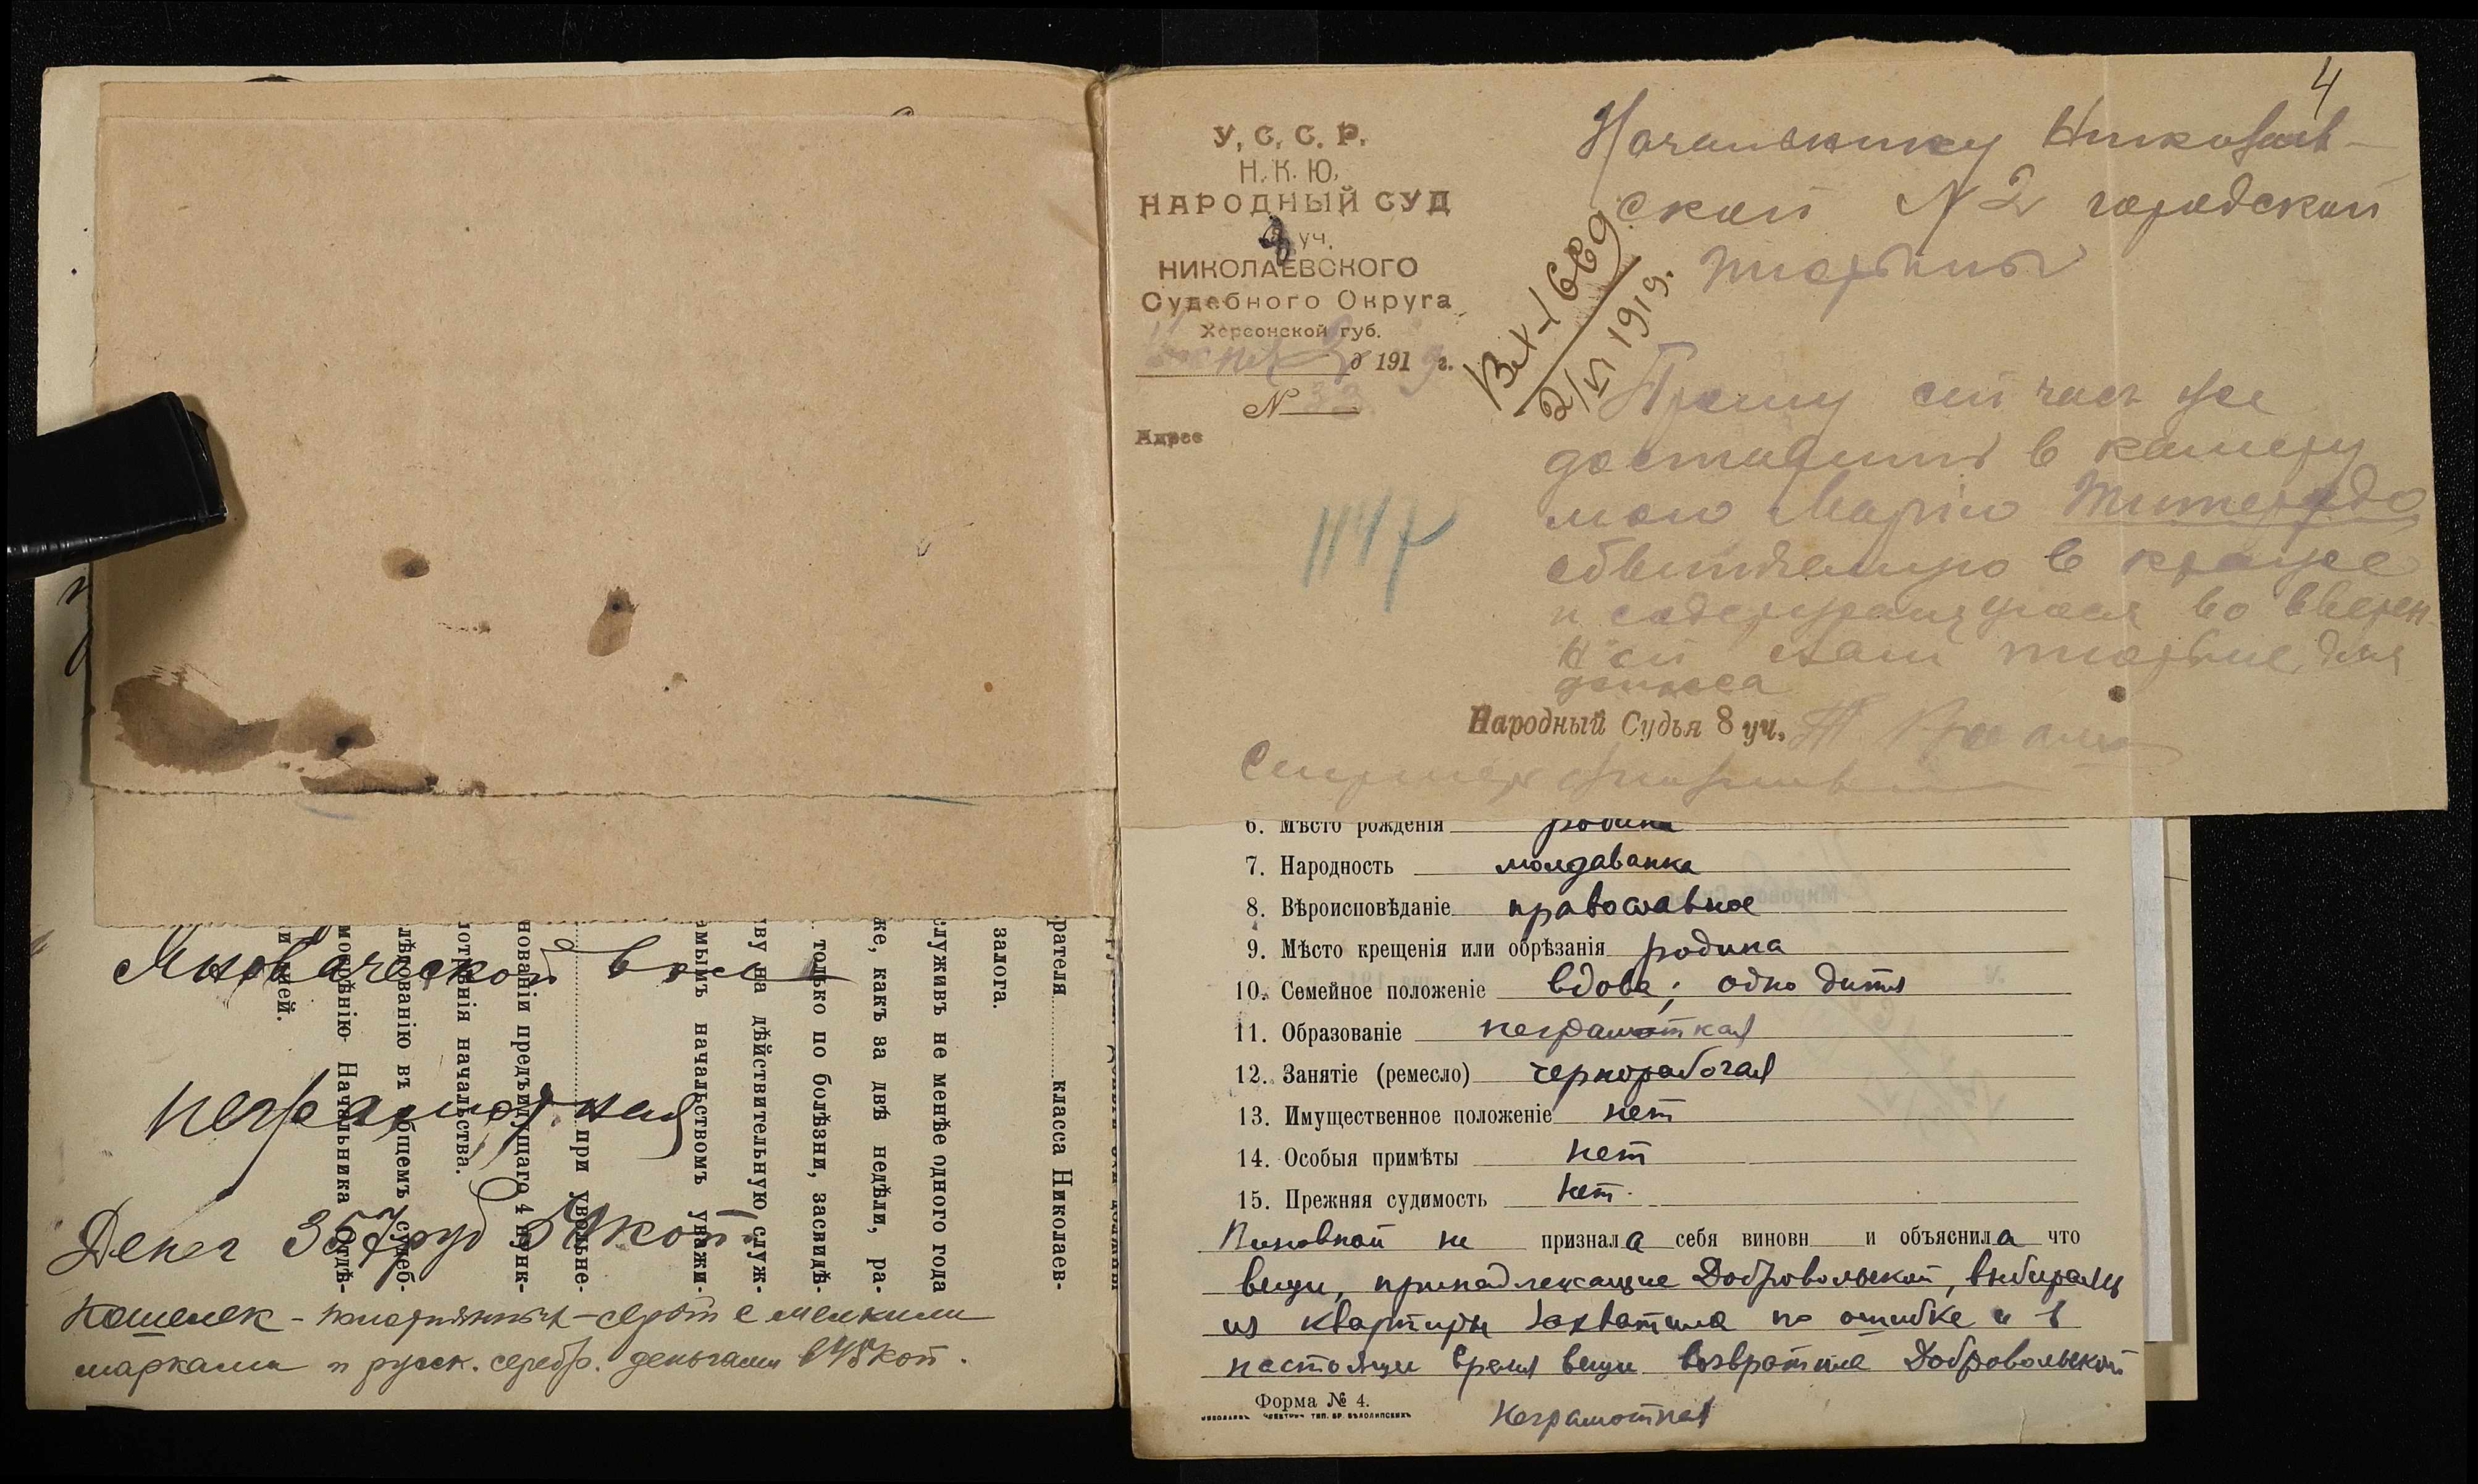 4
У. С. С. Р.
Н. К. Ю.
НАРОДНЫЙ СУД
8 уч.
НИКОЛАЕВСКОГО
Судебного Округа
Херсонской губ.
Июня 2 д 1919 г.
№ 33
Адрес
1147
Вх-1669
2/VI 1919г.
Начальнику Николаев-
ской № 2 городской
тюрьмы
Прошу сей час же
доставить в камеру
мою Марию
обвиняемую в краже
и содержащуюся во вверен-
ной вам тюрьме, для
допроса
Народный Судья 8 уч.
6. Мѣсто рожденія родина
7. Народность молдаванка
8. Вѣроисповѣданіе православное
9. Мѣсто крещенія или обрѣзанія родина
10. Семейное положеніе вдова; одно дитя
11. Образованіе неграмотная
12. Занятіе (ремесло) чернорабочая
13. Имущественное положеніе нет
14. Особыя примѣты нет
15. Прежняя судимость нет.
Виновной не признала себя виновн и объяснила что
вещи, принадлежащие Добровольской, выбираясь
из квартиры захватила по ошибке и в
настоящее время вещи возвратила Добровольской
Форма № 4.
неграмотная
вол
неграмотная
Денег 357 руб 50 коп.
Кошелек - с мелкими
марками и русск. серебр. деньгами в 45 коп.
рателя класса Николаев-
залога.
служивъ не менѣе одного года
же, какъ за двѣ недѣли, ра-
только по болѣзни, засвидѣ-
ву на дѣйствительную служ-
амымъ начальствомъ уважи-
при увольне-
нованіи предъидущаго 4 пунк-
отрѣнія начальства.
лѣдованію въ общемъ судеб-
мотрѣнію Начальника Отдѣ-
и ней.